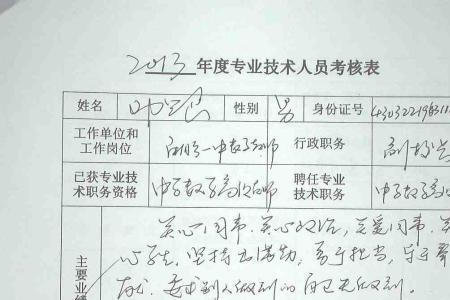 2013年度专业技术人员考核表
姓名 叶 性别 男 身份证号 430322198311
工作单位和 一中教师 行政职务 副校长
工作岗位
已获专业技 中学数学高级教师 聘任专业 中学数学高级
术职务资格 技术职务
主要业绩 关心同事,关心政治,关爱同事,
心学生,坚持出满勤,勇于担当,乐于帮
要求别人做到的自己先做到.